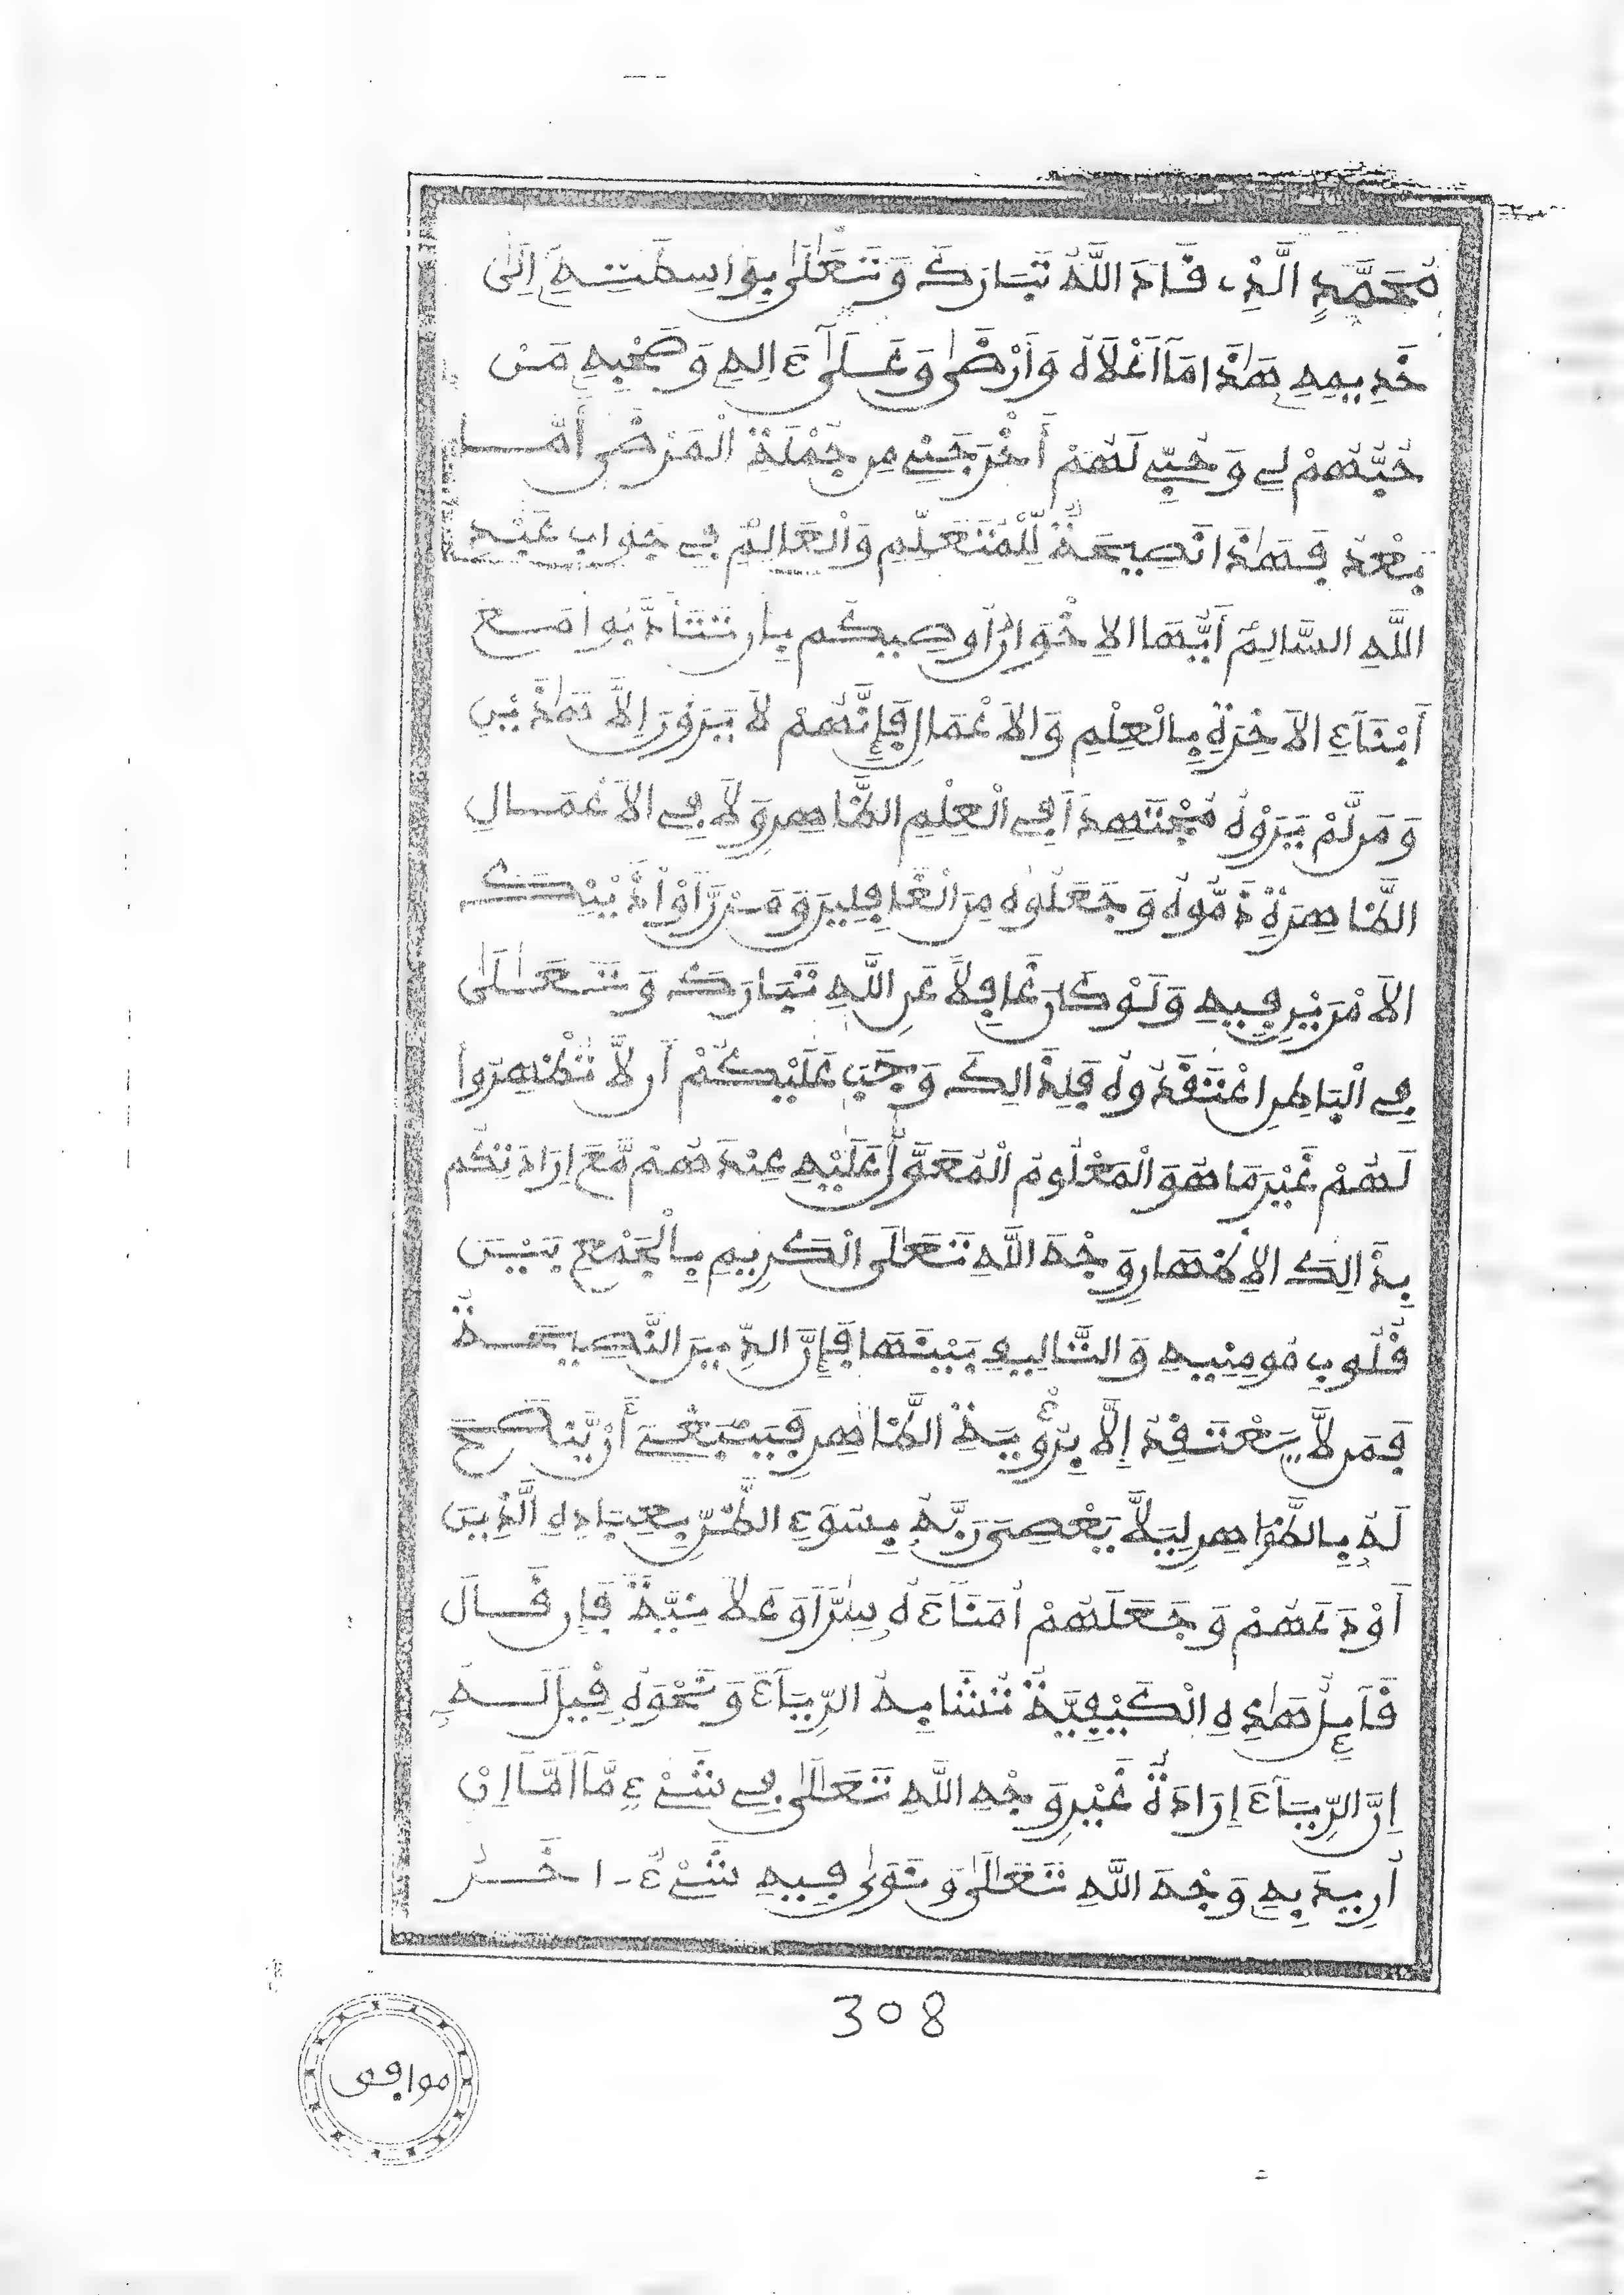 مُحَمَّدٍ الَّذِے قَادَ اللَّهُ تَبَارَكَ وَتَعَالَىٰ بِوَاسِطَتِهِ إِلَىٰ
خَدِيمِهِ هَٰذَا مَآ أَعْلَاهُ وَأَرْضَىٰ وَعَلَىٰٓ ءَالِهِ وَصَحْبِهِ مَنْ
حُبُّهُمْ لِے وَحُبِّے لَهُمْ أَخْرَجَنِے مِن جُمْلَةِ الْمَرْضَىٰ أَمَّا
بَعْدُ فَهَٰذَا نَصِيحَةٌ لِّلْمُتَعَلِّمِ وَالْعَالِمِ فِے جَوَابِ عَبْدِ
اللَّهِ السَّالِمِ أَيُّهَا الإِخْوَانُ أُوصِيكُم بِأَن تَتَأَدَّبُوا مَعَ
أَبْنَآءِ الآخِرَةِ بِالْعِلْمِ وَالأَعْمَالِ فَإِنَّهُمْ لَا يَرَوْنَ إِلَّا هَٰذَيْنِ
وَمَن لَّمْ يَرَوْهُ مُجْتَهِدًا فِے الْعِلْمِ الظَّاهِرِ وَلَا فِے الأَعْمَالِ
الظَّاهِرَةِ ذَمُّوهُ وَجَعَلُوهُ مِنَ الْغَافِلِينَ وَمَنْ رَّأَوْا ذَيْنِكَ
الأَمْرَيْنِ فِيهِ وَلَوْ كَانَ غَافِلًا عَنِ اللَّهِ تَبَارَكَ وَتَعَالَىٰ
فِے الْبَاطِنِ اعْتَقَدُوهُ فَلِذَالِكَ وَجَبَ عَلَيْكُمْ أَن لَّا تُظْهِرُوا
لَهُمْ غَيْرَ مَا هُوَ الْمَعْلُومُ الْمُعَوَّلُ عَلَيْهِ عِنْدَهُمْ مَّعَ إِرَادَتِكُم
بِذَالِكَ الإِظْهَارِ وَجْهَ اللَّهِ تَعَالَىٰ الْكَرِيمِ بِالْجَمْعِ بَيْنَ
قُلُوبِ مُومِنِيهِ وَالتَّالِيفِ بَيْنَهَا فَإِنَّ الدِّينَ النَّصِيحَةُ
فَمَن لَّا يَعْتَقِدُ إِلَّا بِرُؤْيَةِ الظَّاهِرِ فَيَنْبَغِے أَن يُّنْصَحَ
لَهُ بِالظَّوَاهِرِ لِيَلَّا يَعْصِىَ رَبَّهُ بِسُوءِ الظَّنِّ بِعِبَادِهِ الَّذِينَ
أَوْدَعَهُمْ وَجَعَلَهُمْ أُمَنَآءَهُ سِرًّا وَعَلَانِيَّةً فَإِن قَالَ
قَآئِلٌ هَٰذِهِ الْكَيْفِيَّةُ تُشَابِهُ الرِّيَآءَ وَنَحْوَهُ قِيلَ لَهُ
إِنَّ الرِّيَآءَ إِرَادَةُ غَيْرِ وَجْهِ اللَّهِ تَعَالَىٰ فِے شَےْءٍ مَّآ أَمَّآ إِنْ
أُرِيدَ بِهِ وَجْهَ اللَّهِ تَعَالَىٰ وَنَوَىٰ فِيهِ شَےْءٌ اخَرُ
308
موافق